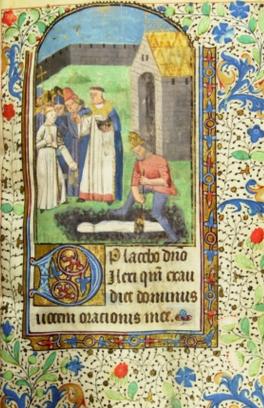 Placebo dño
Dilexi qm̄ exau
diet dominus
uocem oracionis mee.